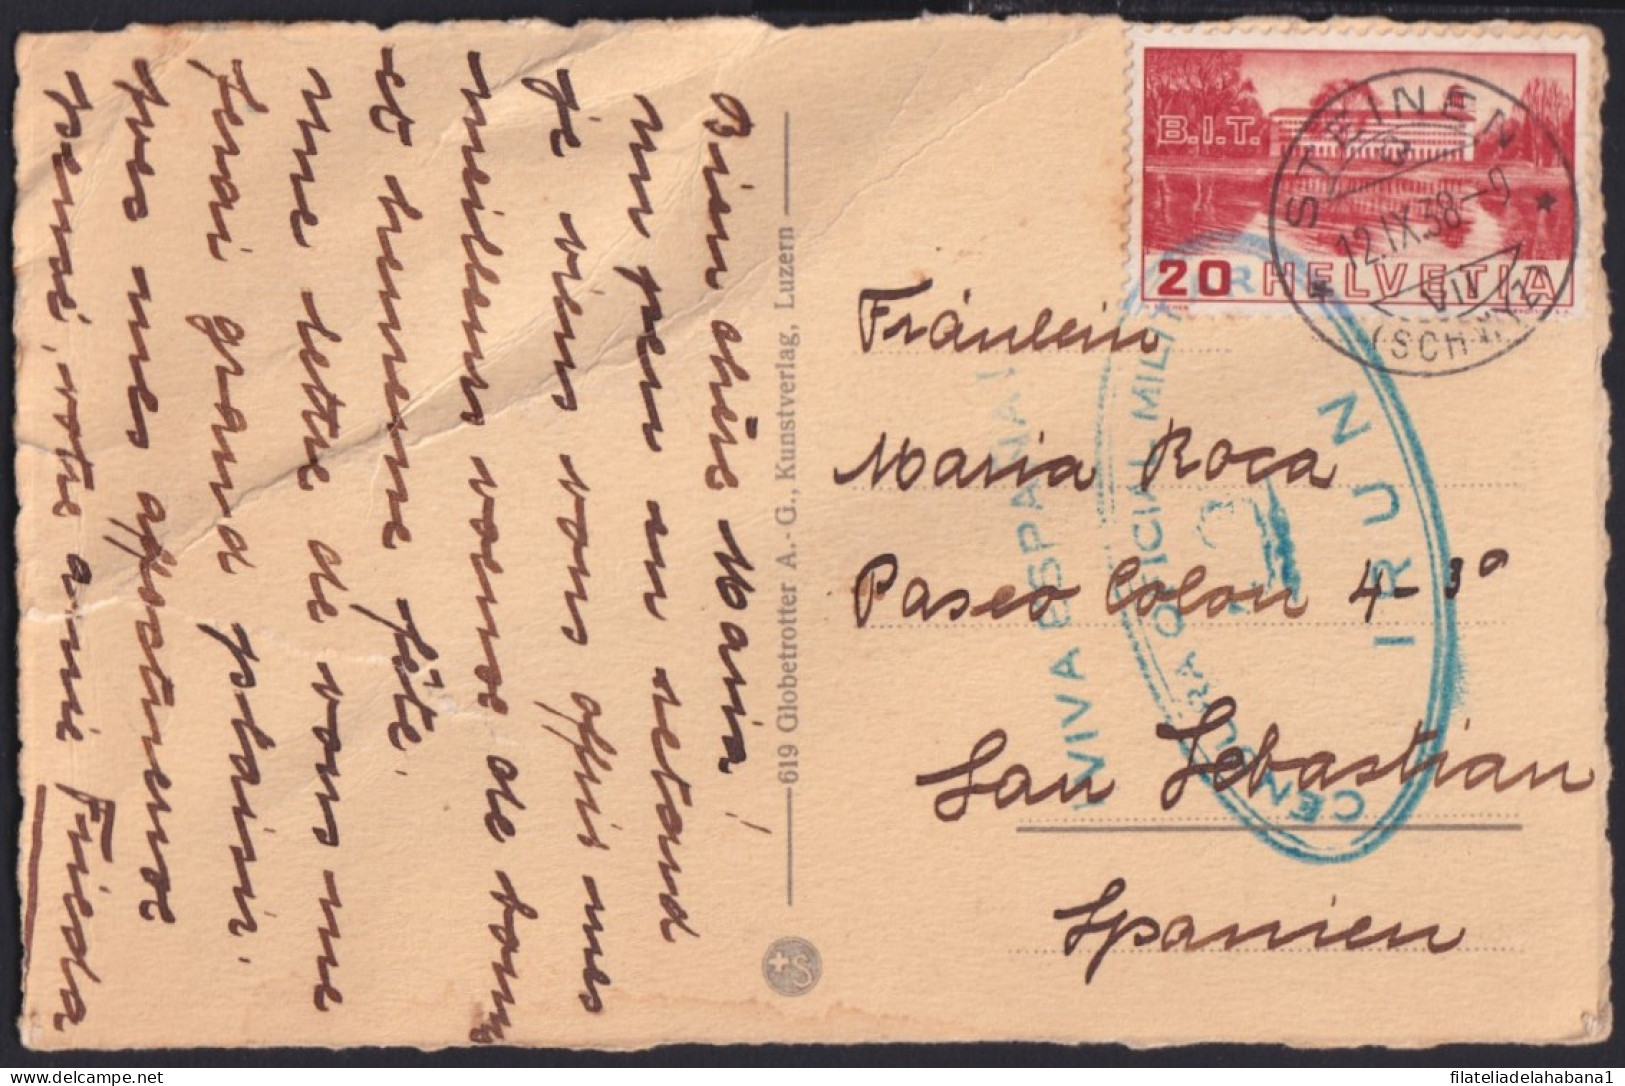 Bien chère Maria!
Un peu en retard
je viens vous offri mes
meilleurs voeux de bonne
et heureuse fête.
Une lettre de vous me
ferai grand plaisir.
Avec mes affectueuse
pensé, votre amie Frieda
619 Globetrotter A.-G., Kunstverlag, Luzern
B.I.T.
20 HELVETIA
STEINEN
12.IX.38-9
VII
(SCHWYZ)
Fräulein
Maria Roca
Paseo Colon 4-3º
San Sebastian
Spanien
¡VIVA ESPAÑA!
CENSURA OFICIAL MILITAR
IRUN
filateliadelahabana1